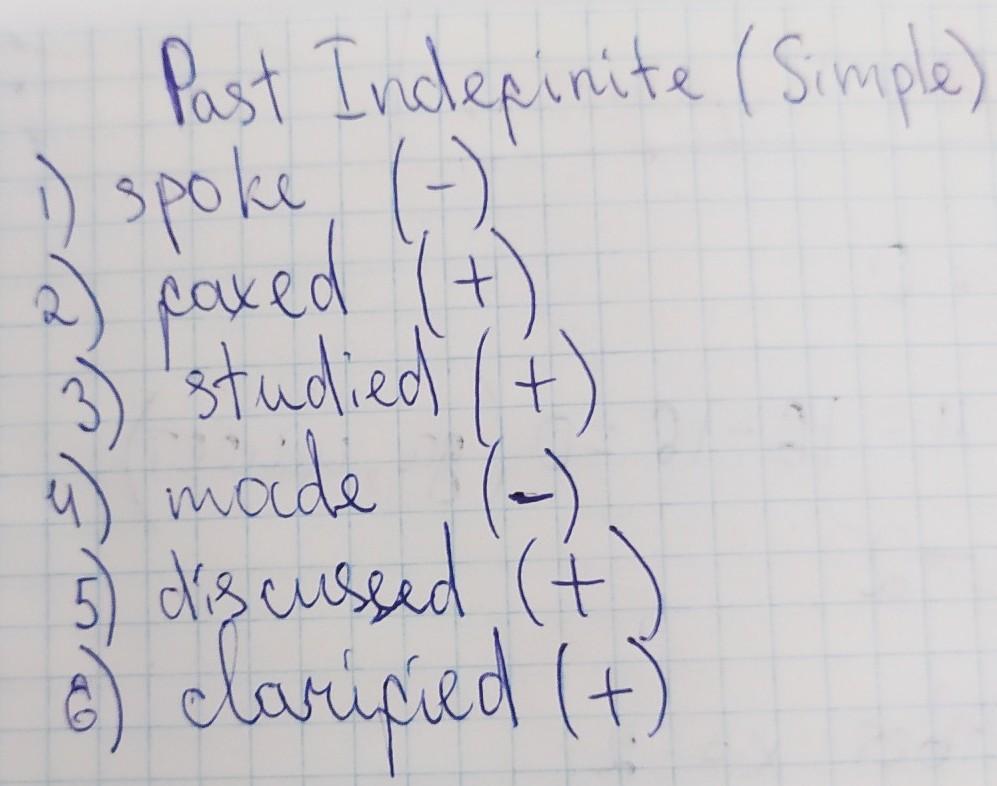 Past Indefinite (Simple)
1) spoke (-)
2) faxed (+)
3) studied (+)
4) made (-)
5) discussed (+)
6) clarified (+)